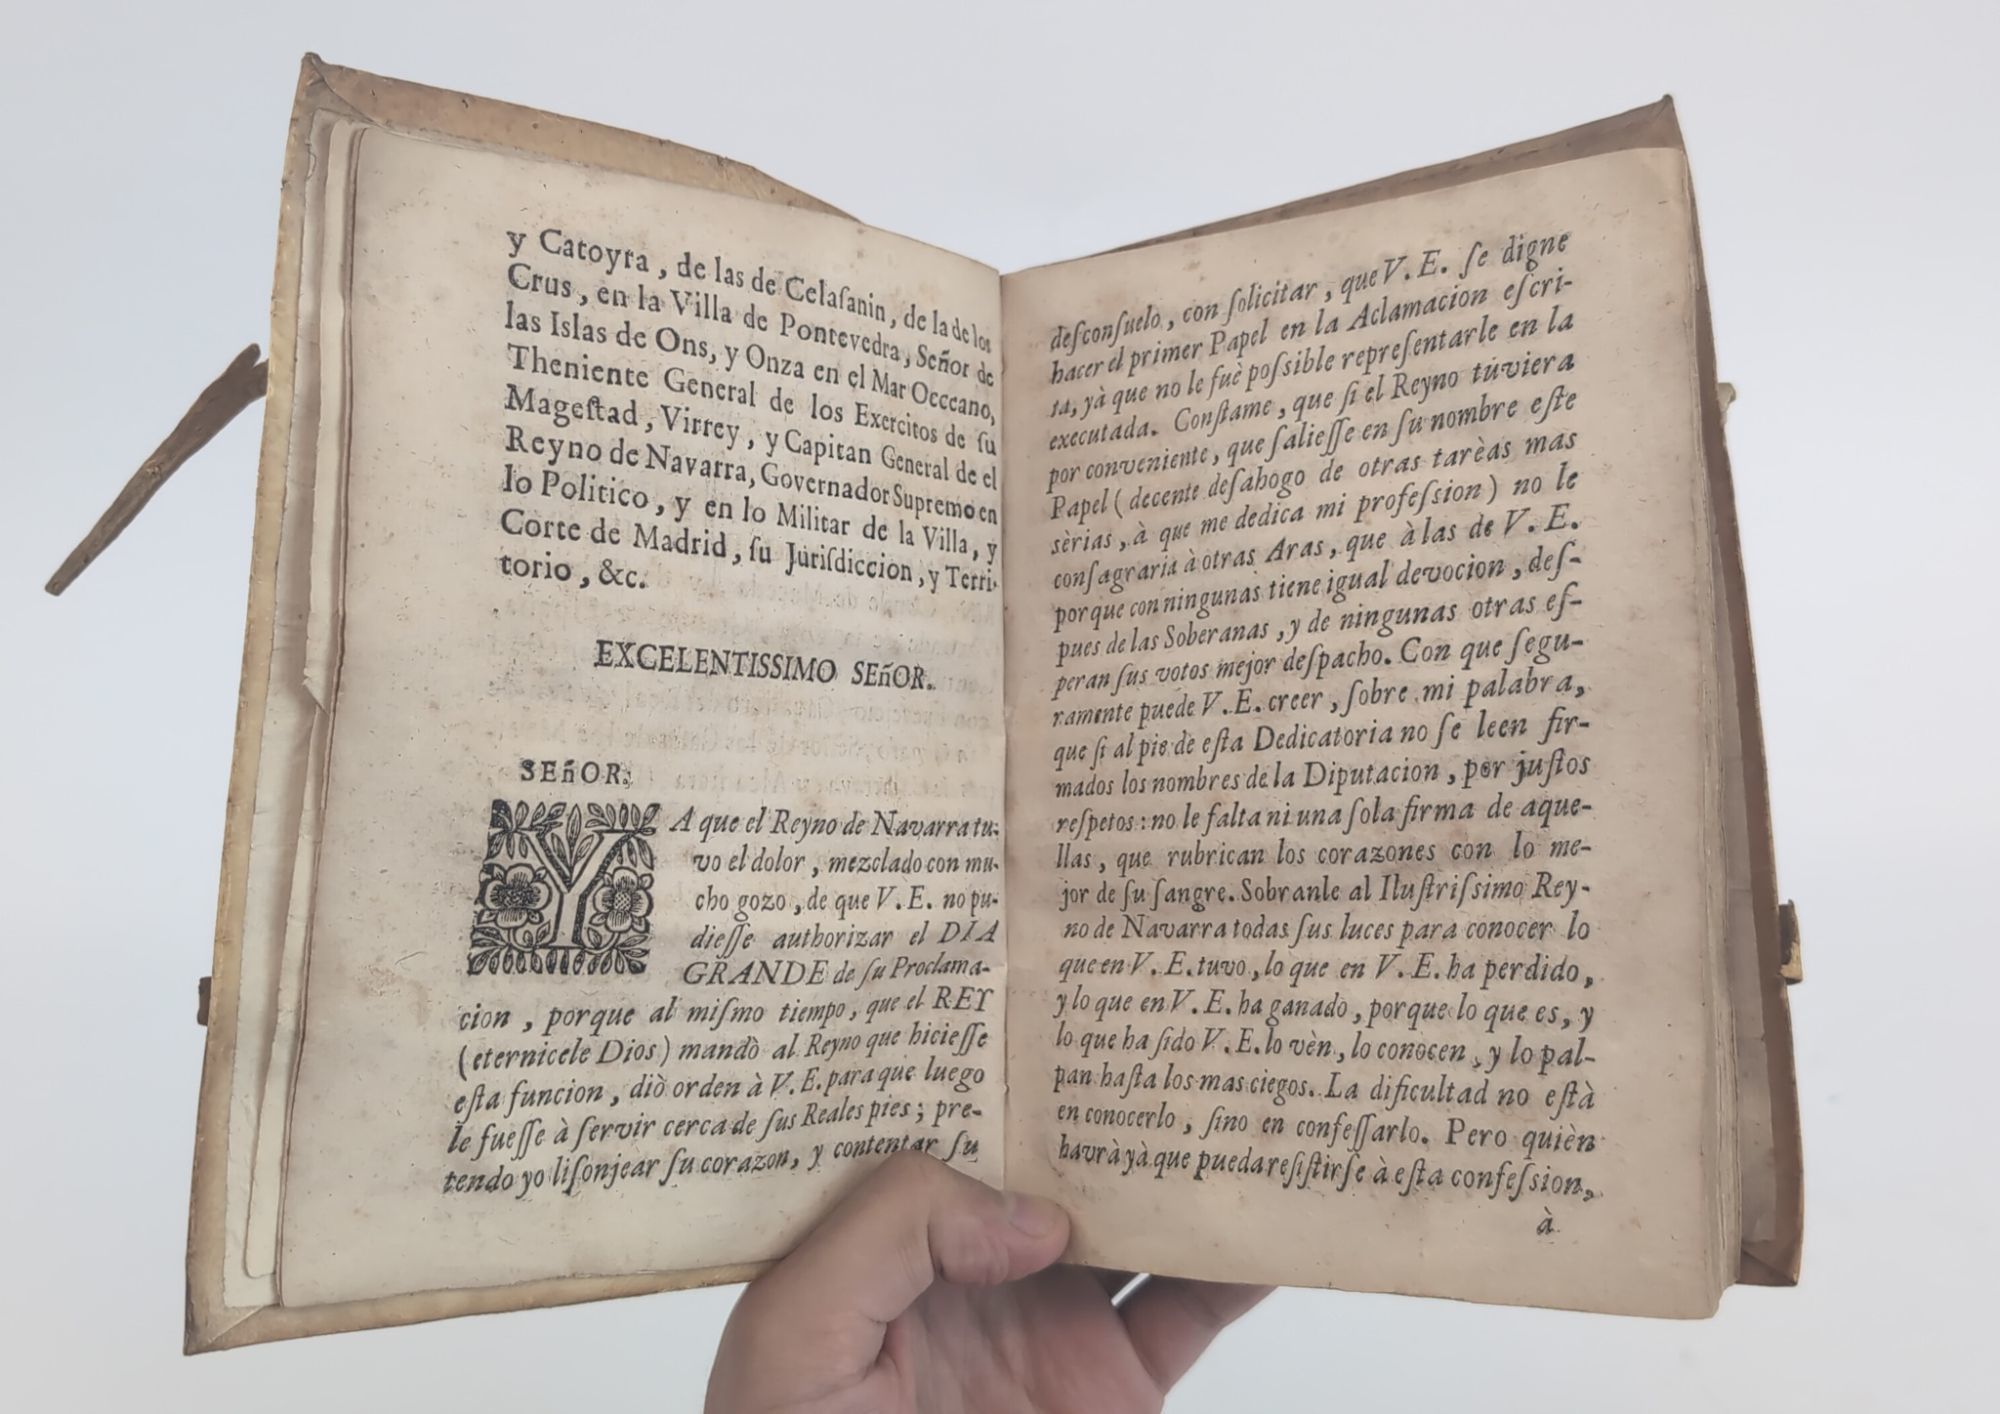 y Catoyra, de las de Celaſanin, de la de los
Crus, en la Villa de Pontevedra, Señor de
las Islas de Ons, y Onza en el Mar Occeano,
Theniente General de los Exercitos de ſu
Mageſtad, Virrey, y Capitan General de el
Reyno de Navarra, Governador Supremo en
lo Politico, y en lo Militar de la Villa, y
Corte de Madrid, ſu Juriſdiccion, y Terri-
torio, &c.
EXCELENTISSIMO SEñOR.
SEñOR.
YA que el Reyno de Navarra tu-
vo el dolor, mezclado con mu-
cho gozo, de que V. E. no pu-
dieſſe authorizar el DIA
GRANDE de ſu Proclama-
cion, porque al miſmo tiempo, que el REY
(eternicele Dios) mandò al Reyno que hicieſſe
eſta funcion, diò orden à V. E. para que luego
le fueſſe à ſervir cerca de ſus Reales pies; pre-
tendo yo liſonjear ſu corazon, y contentar ſu
deſconſuelo, con ſolicitar, que V. E. ſe digne
hacer el primer Papel en la Aclamacion eſcri-
ta, yà que no le fuè poſsible repreſentarle en la
executada. Conſtame, que ſi el Reyno tùviera
por conveniente, que ſalieſſe en ſu nombre eſte
Papel (decente deſahogo de otras tarèas mas
sèrias, à que me dedica mi profeſsion) no le
conſagraria à otras Aras, que à las de V. E.
porque con ningunas tiene igual devocion, deſ-
pues de las Soberanas, y de ningunas otras eſ-
peran ſus votos mejor deſpacho. Con que ſegu-
ramente puede V. E. creer, ſobre mi palabra,
que ſi al pie de eſta Dedicatoria no ſe leen fir-
mados los nombres de la Diputacion, por juſtos
reſpetos: no le falta ni una ſola firma de aque-
llas, que rubrican los corazones con lo me-
jor de ſu ſangre. Sobranle al Iluſtriſsimo Rey-
no de Navarra todas ſus luces para conocer lo
que en V. E. tuvo, lo que en V. E. ha perdido,
y lo que en V. E. ha ganado, porque lo que es, y
lo que ha ſido V. E. lo vèn, lo conocen, y lo pal-
pan haſta los mas ciegos. La dificultad no eſtà
en conocerlo, ſino en confeſſarlo. Pero quièn
havrà yà que pueda reſiſtirſe à eſta confeſsion,
à